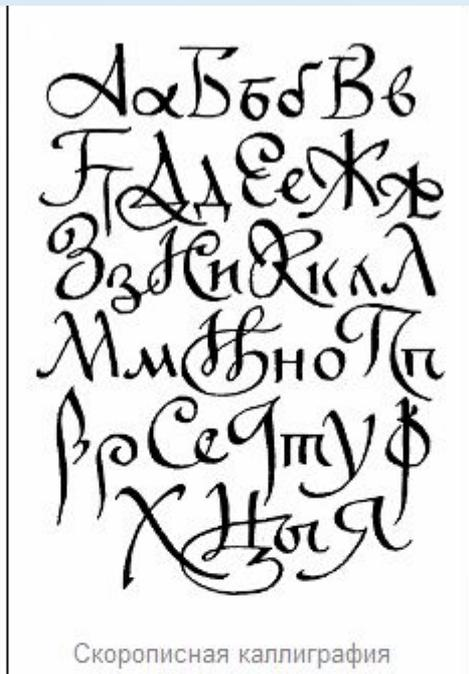 АаБббВв
ГгДдЕеЖж
ЗзИиКклЛ
МмНноПп
РрСсТтуф
ХЦыЯ
Скорописная каллиграфия